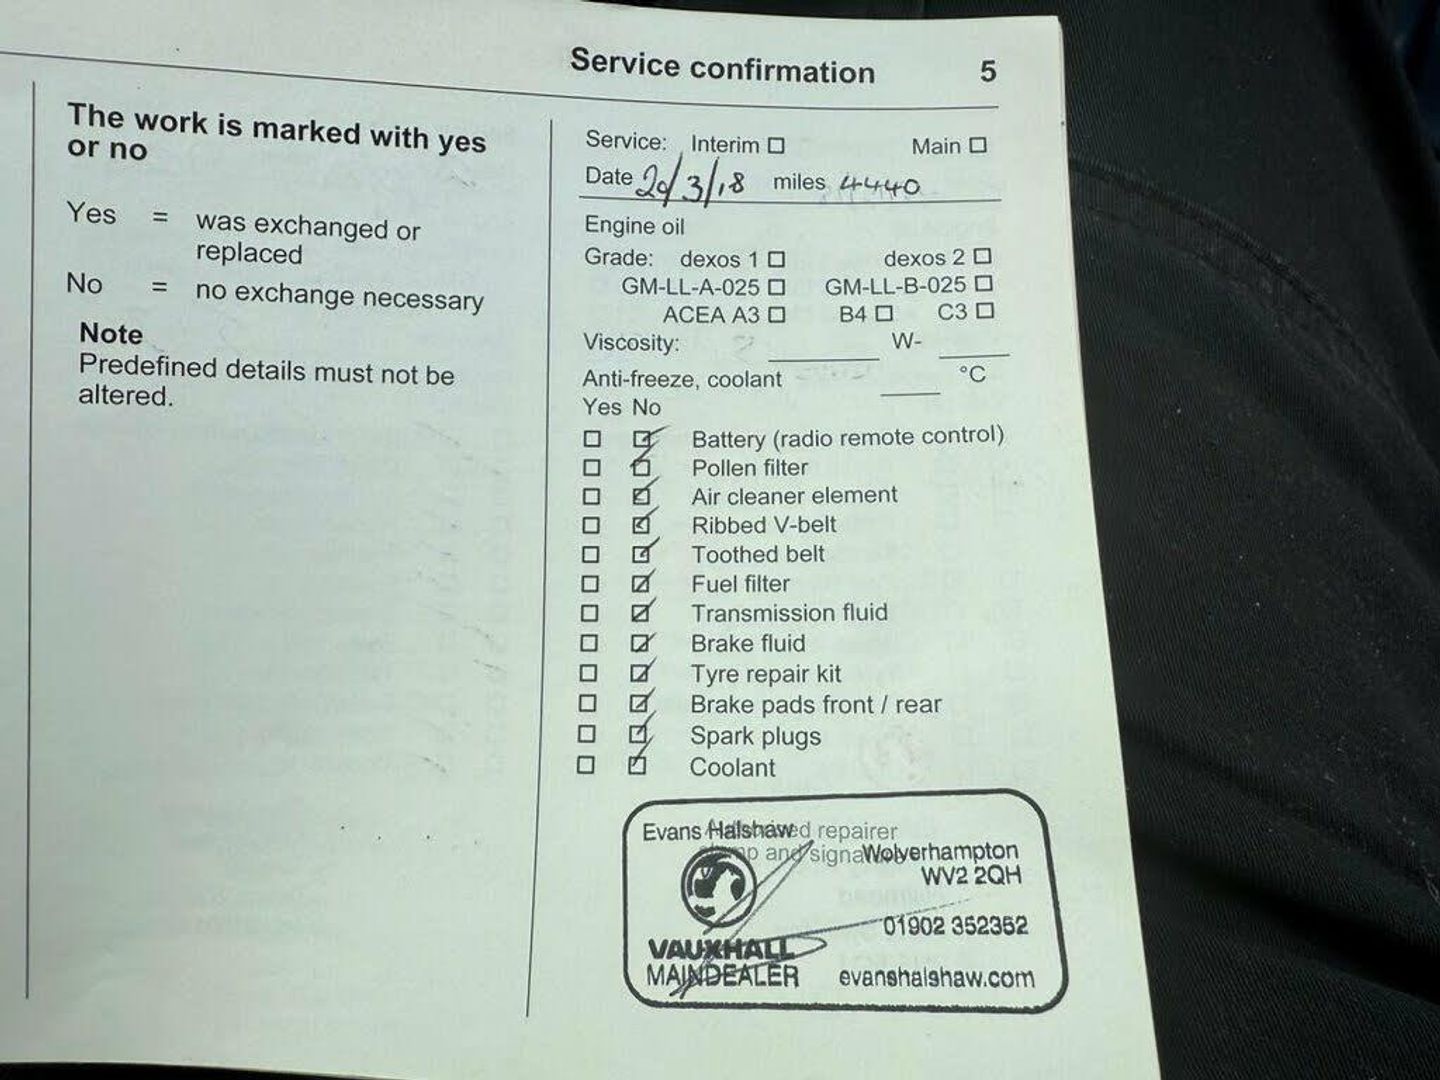 Service confirmation 5
The work is marked with yes
or no
Yes = was exchanged or
replaced
No = no exchange necessary
Note
Predefined details must not be
altered.
Service: Interim ☐ Main ☐
Date 20/3/18 miles 4440
Engine oil
Grade: dexos 1 ☐ dexos 2 ☐
GM-LL-A-025 ☐ GM-LL-B-025 ☐
ACEA A3 ☐ B4 ☐ C3 ☐
Viscosity: ____ W- ____
Anti-freeze, coolant ____ °C
Yes No
☐ ☑ Battery (radio remote control)
☐ ☑ Pollen filter
☐ ☑ Air cleaner element
☐ ☑ Ribbed V-belt
☐ ☑ Toothed belt
☐ ☑ Fuel filter
☐ ☑ Transmission fluid
☐ ☑ Brake fluid
☐ ☑ Tyre repair kit
☐ ☑ Brake pads front / rear
☐ ☑ Spark plugs
☐ ☑ Coolant
Evans Halshaw repairer
and signature Wolverhampton
WV2 2QH
01902 352352
VAUXHALL
MAINDEALER evanshalshaw.com